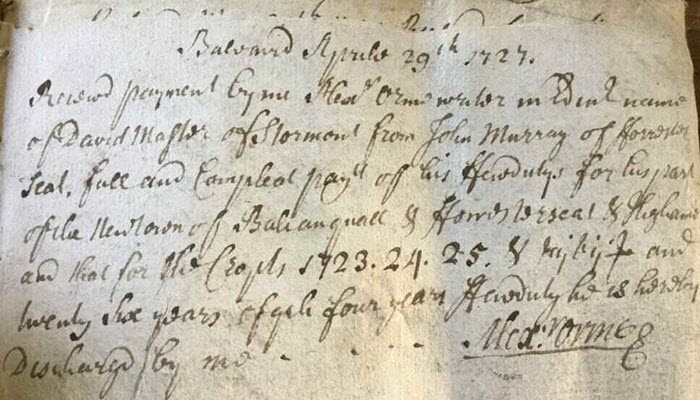 Balvaird Aprile 29th 1727.
Receivd payment by me Alexr Orme writer in Edinr name
of David Master of Stormont from John Murray of fforrester
Seat, full and Compleat payt off his ffewdutys for his part
of the Newtown of Balcanquall & fforresterseat & Higham
and that for the Cropts 1723. 24. 25. & and
twenty six years of qch four years ffewduty he is hereby
Discharged by me - - - - Alexr Orme